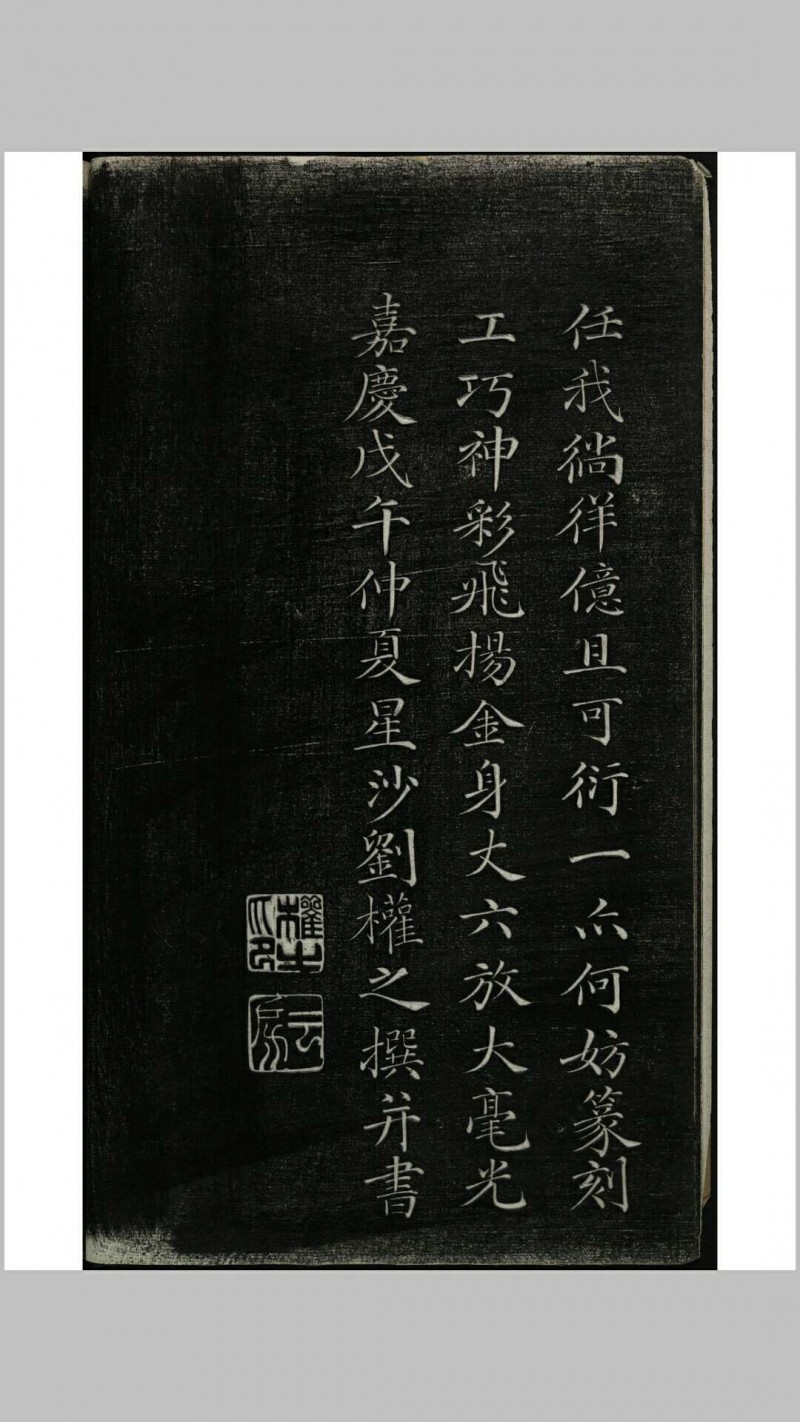 任我徜徉億且可衍一亦何妨篆刻
工巧神彩飛揚金身丈六放大毫光
嘉慶戊午仲夏星沙劉權之撰并書
權之